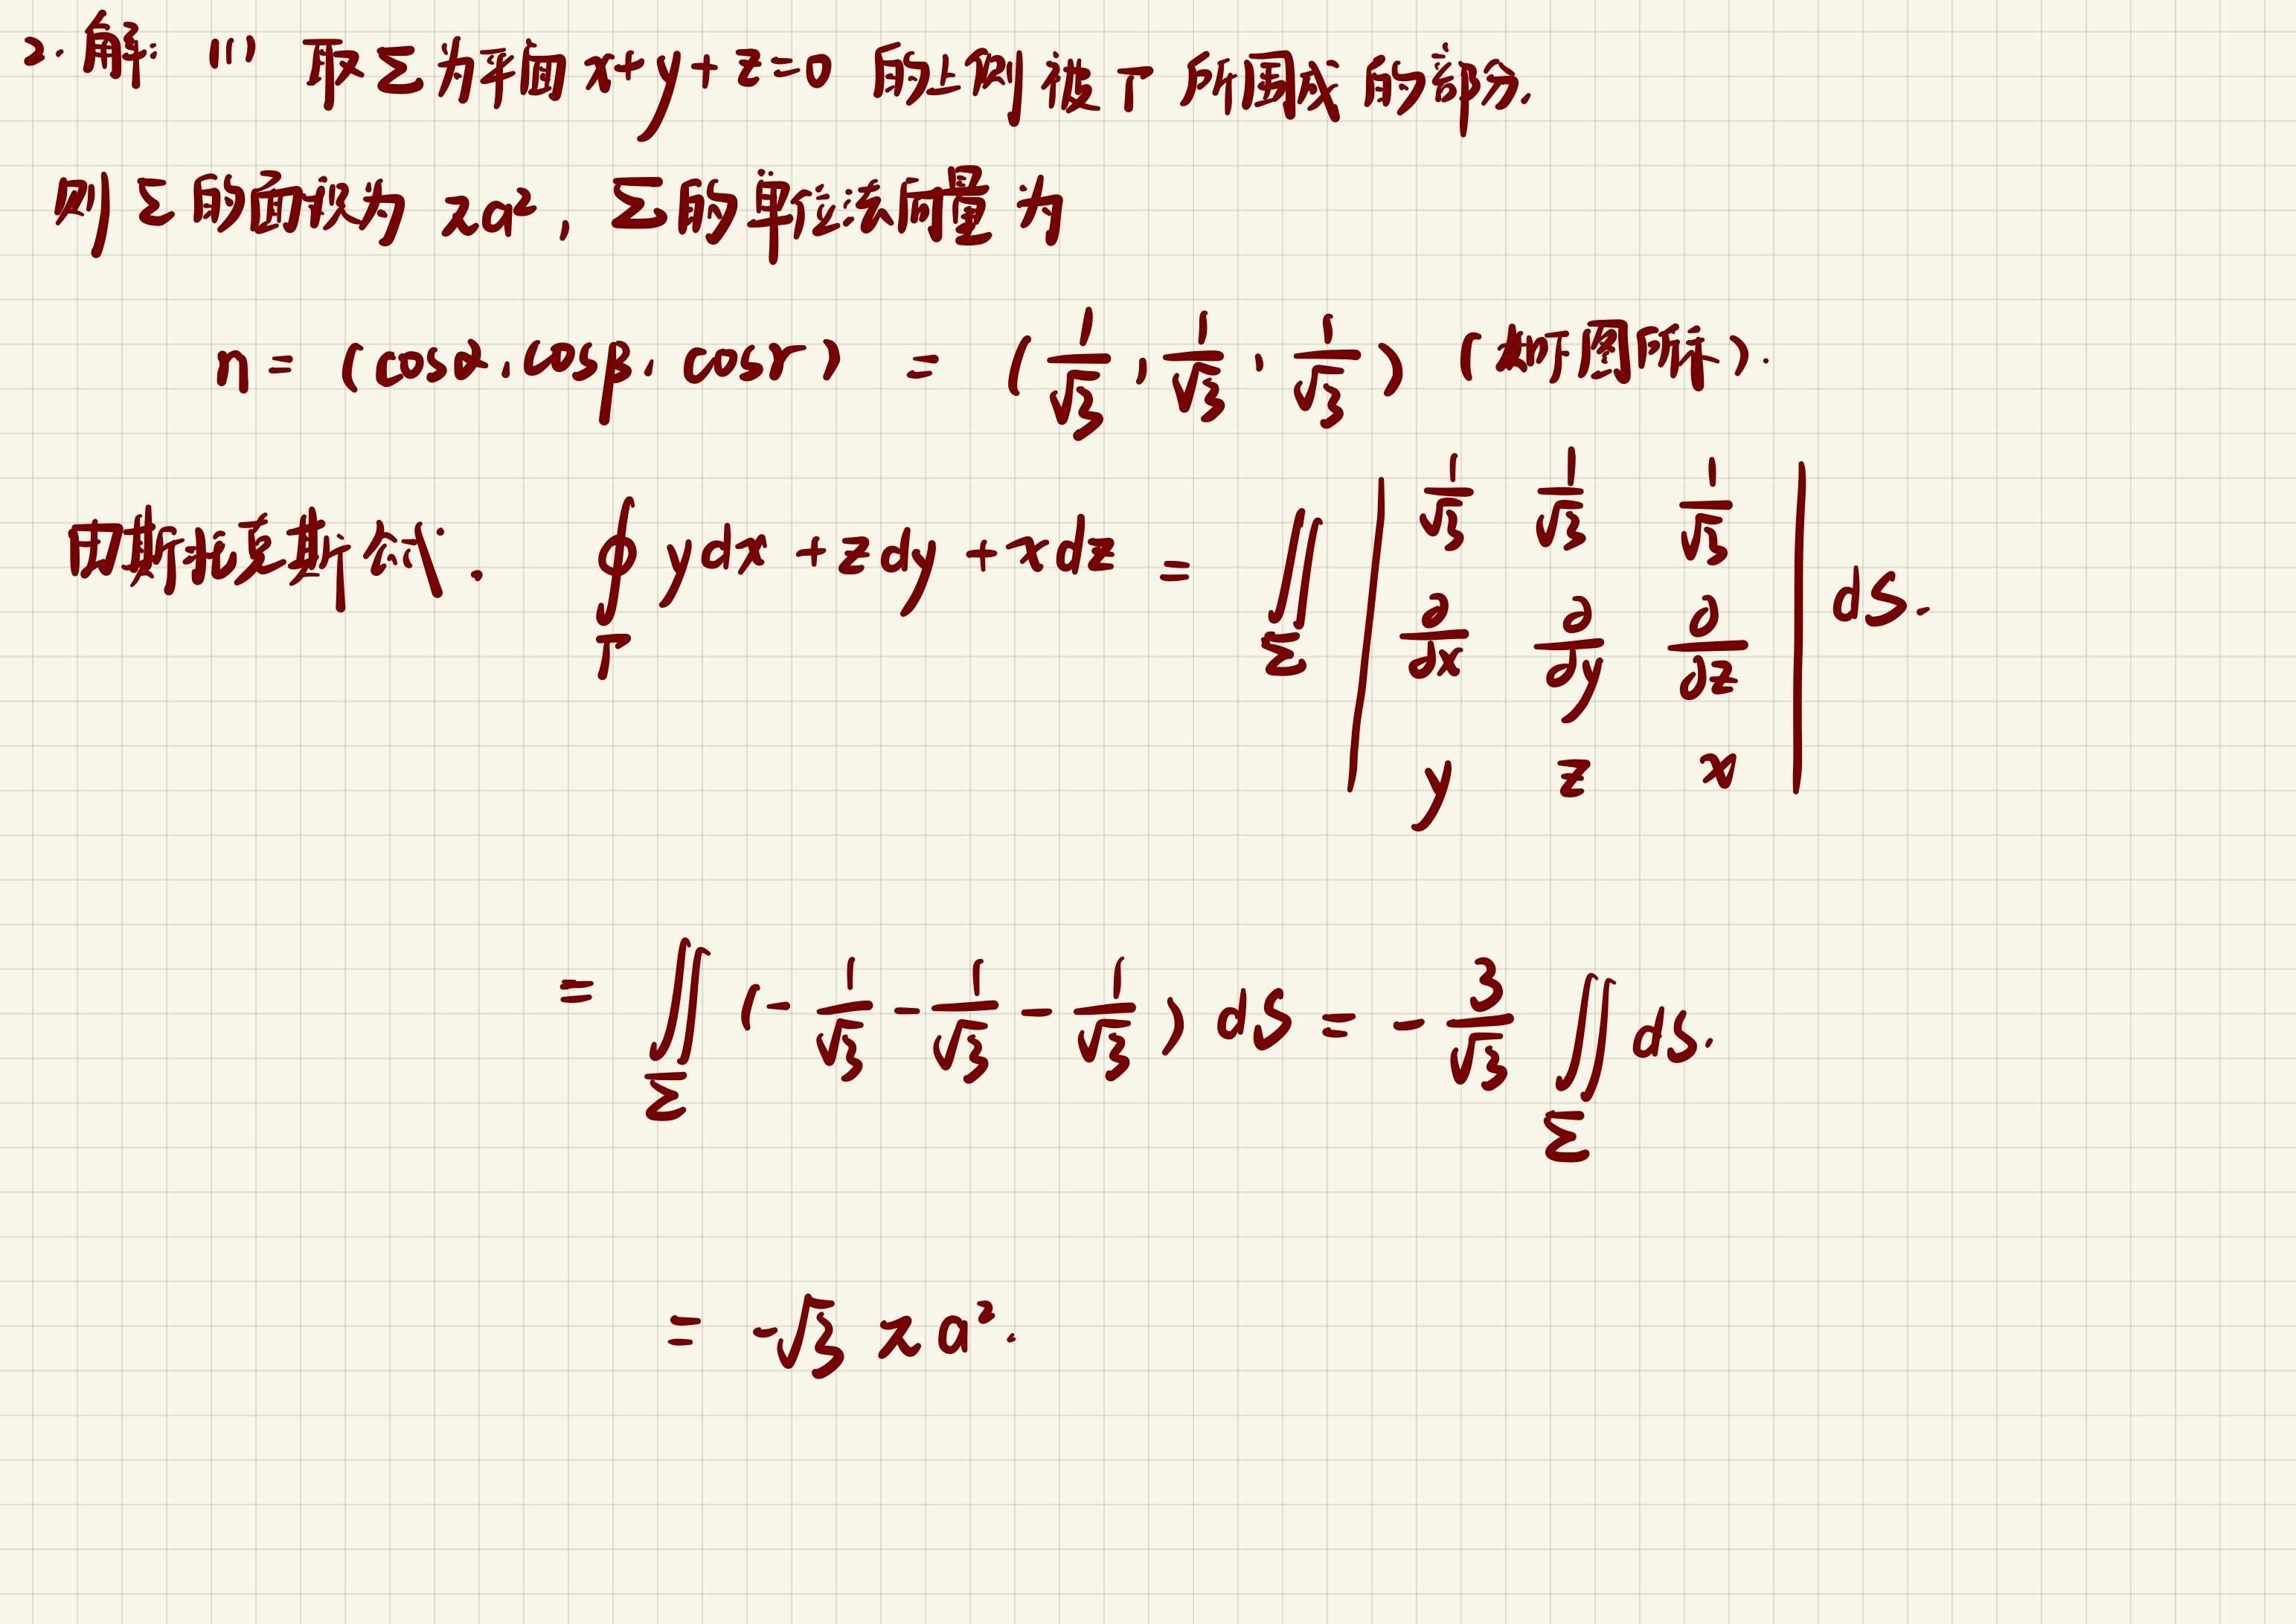 2. 解: (1) 取Σ为平面 x+y+z=0 的上侧被 Γ 所围成的部分,
则 Σ 的面积为 πa², Σ的单位法向量为
n = (cosα, cosβ, cosγ) = (1/√3, 1/√3, 1/√3) (如下图所示).
由斯托克斯公式. ∮_Γ ydx + zdy + xdz = ∬_Σ | 1/√3 1/√3 1/√3 ; ∂/∂x ∂/∂y ∂/∂z ; y z x | dS.
= ∬_Σ (- 1/√3 - 1/√3 - 1/√3) dS = - 3/√3 ∬_Σ dS.
= -√3 πa².